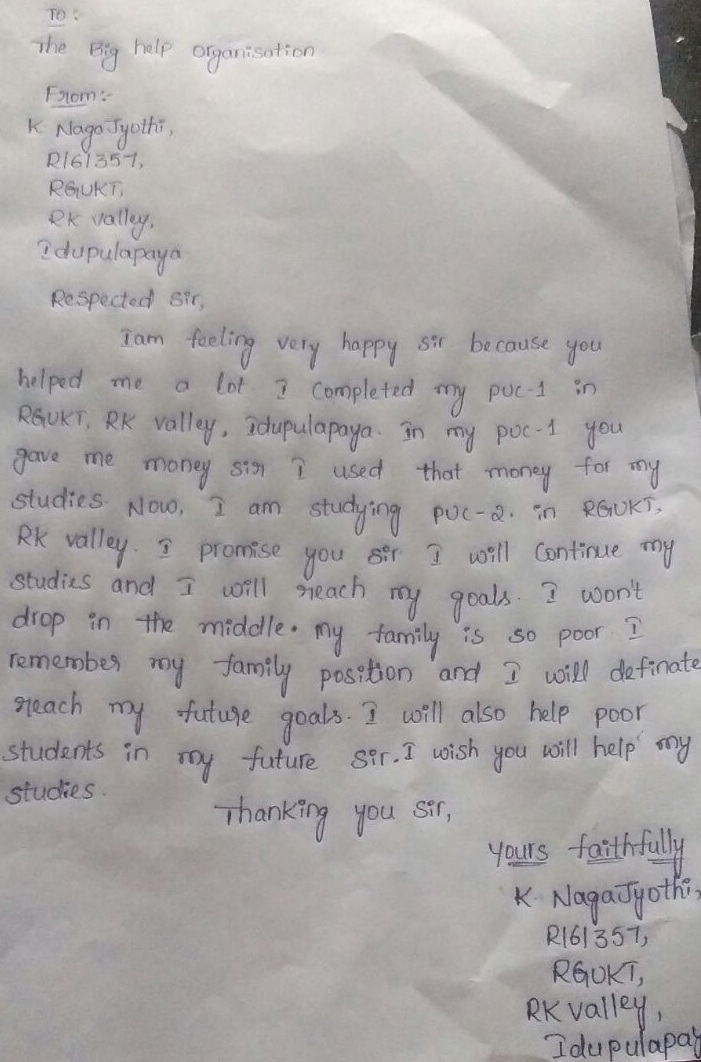 To :
The Big help organisation
From :-
K NagaJyothi,
R161357,
RGUKT,
RK valley,
Idupulapaya
Respected Sir,
Iam feeling very happy sir because you
helped me a lot. I completed my puc-1 in
RGUKT, RK valley, Idupulapaya. In my puc-1 you
gave me money sir I used that money for my
studies. Now, I am studying puc-2. in RGUKT,
RK valley. I promise you sir I will continue my
studies and I will reach my goals. I won't
drop in the middle. my family is so poor I
remember my family position and I will definate
reach my future goals. I will also help poor
students in my future sir. I wish you will help my
studies.
Thanking you Sir,
yours faithfully
K. NagaJyothi,
R161357,
RGUKT,
RK valley,
Idupulapay